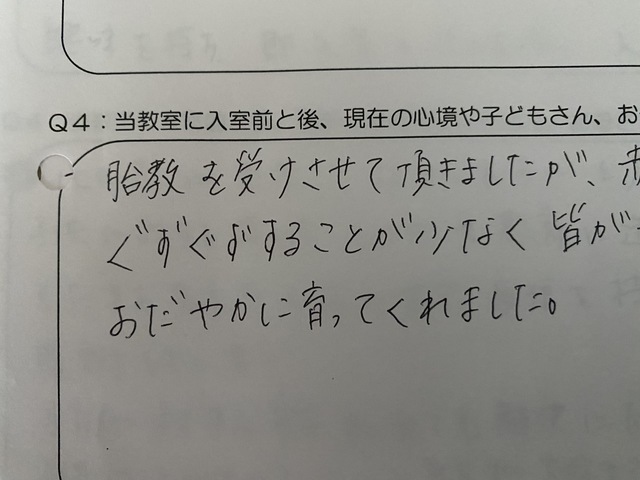 Q4：当教室に入室前と後、現在の心境や子どもさん、お
胎教を受けさせて頂きましたが、
ぐずぐずすることが少なく皆が
おだやかに育ってくれました。